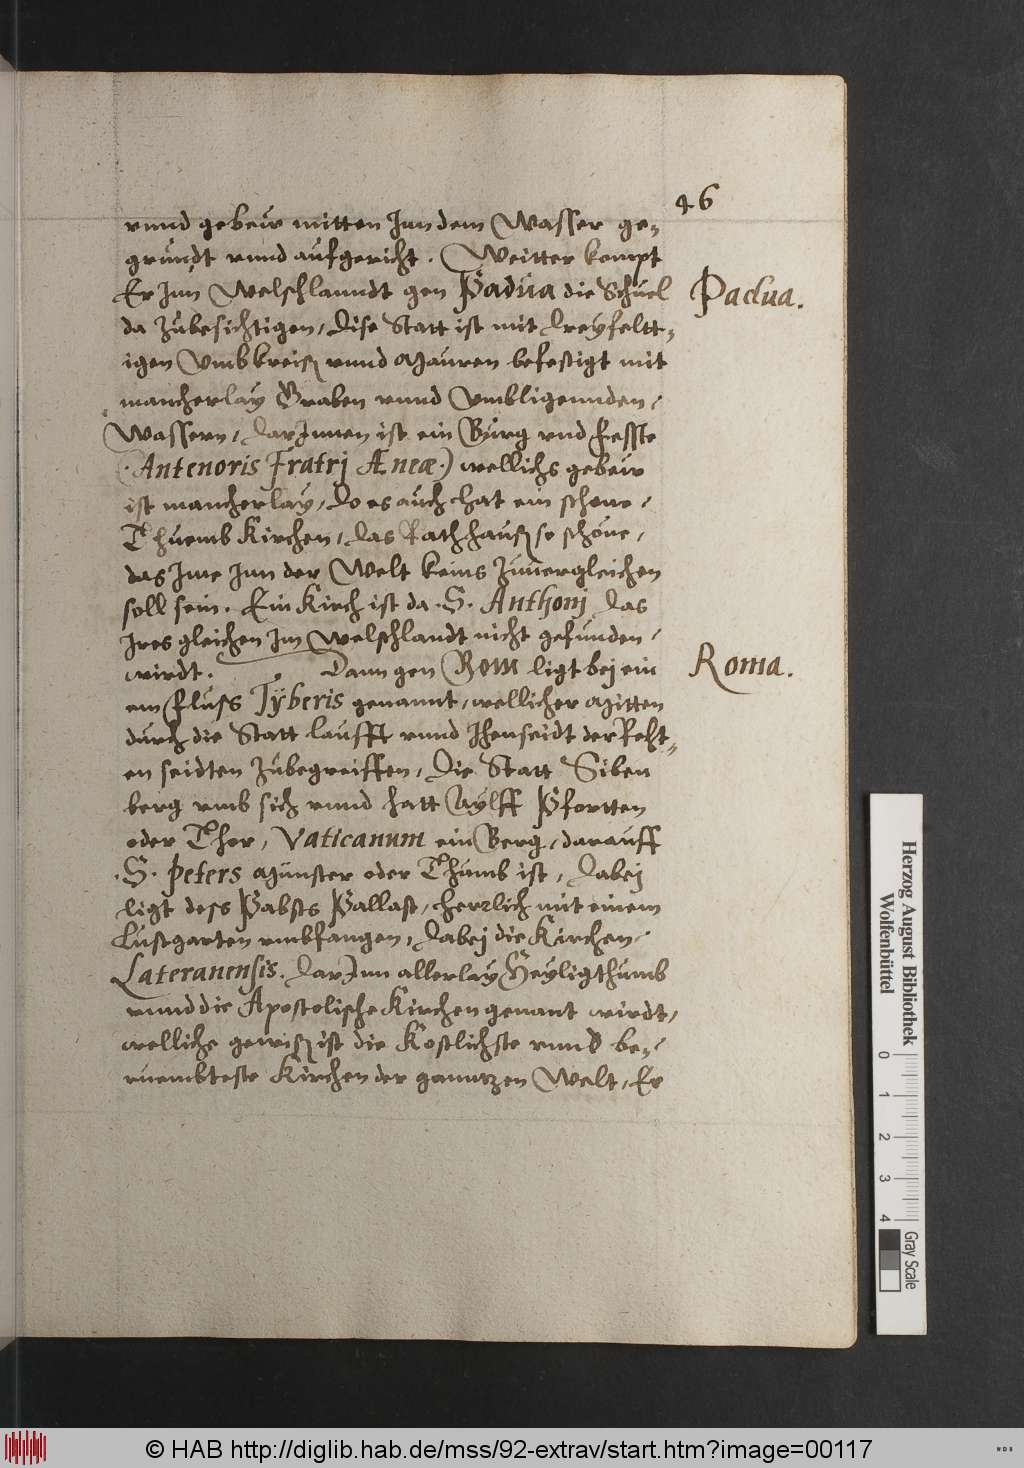 46
vnnd gebew mitten Inn dem Wasser ge-
gründt vnnd aufgericht. Weitter kompt
Er Inn Welschlanndt gen Padua die Schuel
Padua.
da zubesichtigen, dise Statt ist mit dreyfeltt-
igen Vmbkreiß vnnd Mauren befestigt mit
mancherlay Graben vnnd Vmbligennden
Wassern, darInnen ist ein Burg vnd Fesste
(Antenoris Fratrj Æneæ.) wellichs gebew
ist mancherlay, do es auch hat ein schone
Thuemb Kirchen, das Rathhauß so schöne,
das Ime Inn der Welt keins Zuuergleichen
soll sein. Ein Kirch ist da S. Anthonj das
Ires gleichen Im Welschlandt nicht gefunden
wirdt. Dann gen Rom ligt bej ein
Roma.
em Fluss Tÿberis genannt, wellicher Mitten
durch die Statt laufft vnnd Ihenseidt der Recht-
en seidten Zubegreiffen, die Statt Siben
berg vmb sich vnnd hatt Aylff Pfortten
oder Thor, Vaticanum ein Berg, darauff
S. Peters Münster oder Thumb ist, dabej
ligt dess Pabsts Pallast, herrlich mit einem
Lustgarten vmbfangen, dabej die Kirchen
Lateranensis. darInn allerlay Heyligthumb
vnnd die Apostolische Kirchen genant wirdt,
welliche gewiß ist die Kostlichste vnnd be-
ruembteste Kirchen der ganntzen Welt, Er
Herzog August Bibliothek
Wolfenbüttel
0 1 2 3 4
Gray Scale
© HAB http://diglib.hab.de/mss/92-extrav/start.htm?image=00117
WDB